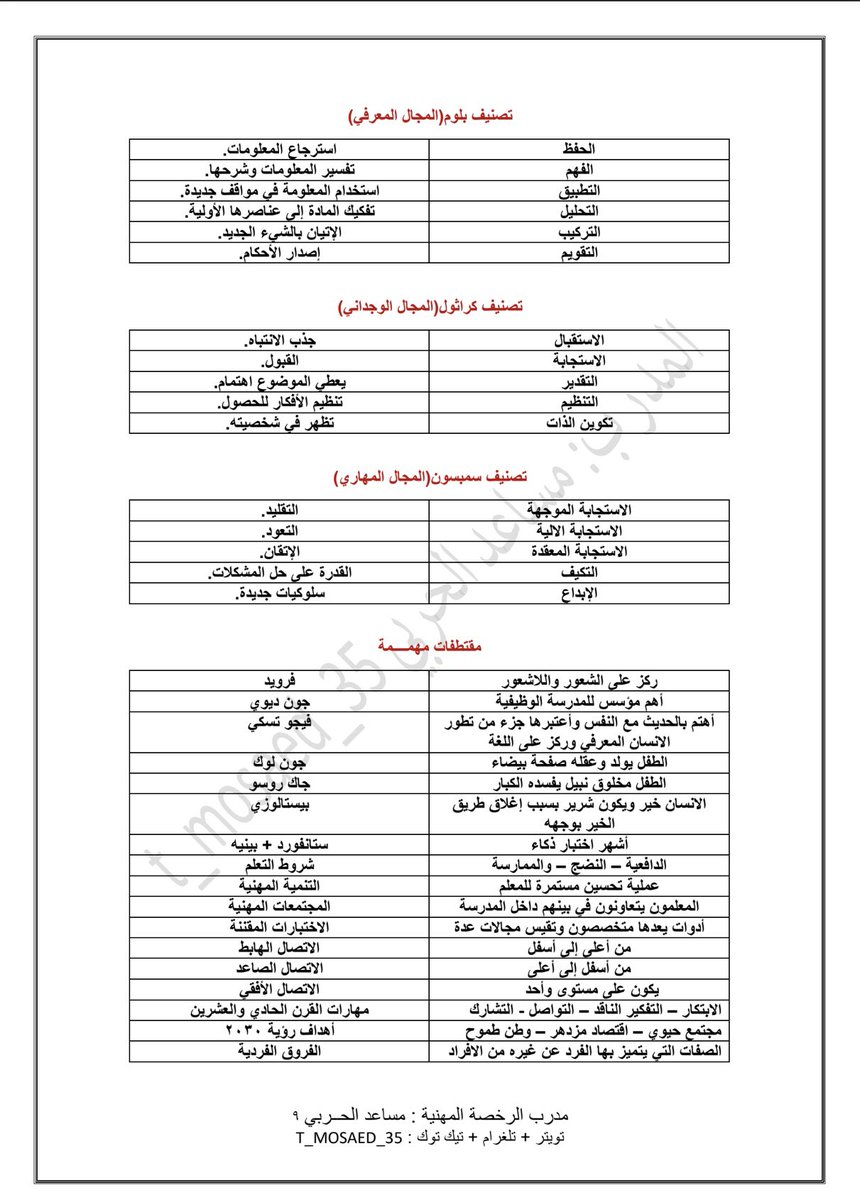 تصنيف بلوم(المجال المعرفي)
الحفظ استرجاع المعلومات.
الفهم تفسير المعلومات وشرحها.
التطبيق استخدام المعلومة في مواقف جديدة.
التحليل تفكيك المادة إلى عناصرها الأولية.
التركيب الإتيان بالشيء الجديد.
التقويم إصدار الأحكام.
تصنيف كراثول(المجال الوجداني)
الاستقبال جذب الانتباه.
الاستجابة القبول.
التقدير يعطي الموضوع اهتمام.
التنظيم تنظيم الأفكار للحصول.
تكوين الذات تظهر في شخصيته.
تصنيف سمبسون(المجال المهاري)
الاستجابة الموجهة التقليد.
الاستجابة الالية التعود.
الاستجابة المعقدة الإتقان.
التكيف القدرة على حل المشكلات.
الإبداع سلوكيات جديدة.
مقتطفات مهمـــة
ركز على الشعور واللاشعور فرويد
أهم مؤسس للمدرسة الوظيفية جون ديوي
أهتم بالحديث مع النفس وأعتبرها جزء من تطور فيجو تسكي
الانسان المعرفي وركز على اللغة
الطفل يولد وعقله صفحة بيضاء جون لوك
الطفل مخلوق نبيل يفسده الكبار جاك روسو
الانسان خير ويكون شرير بسبب إغلاق طريق بيستالوزي
الخير بوجهه
أشهر اختبار ذكاء ستانفورد + بينيه
الدافعية – النضج – والممارسة شروط التعلم
عملية تحسين مستمرة للمعلم التنمية المهنية
المعلمون يتعاونون في بينهم داخل المدرسة المجتمعات المهنية
أدوات يعدها متخصصون وتقيس مجالات عدة الاختبارات المقننة
من أعلى إلى أسفل الاتصال الهابط
من أسفل إلى أعلى الاتصال الصاعد
يكون على مستوى وأحد الاتصال الأفقي
الابتكار – التفكير الناقد – التواصل - التشارك مهارات القرن الحادي والعشرين
مجتمع حيوي – اقتصاد مزدهر – وطن طموح أهداف رؤية ٢٠٣٠
الصفات التي يتميز بها الفرد عن غيره من الافراد الفروق الفردية
المدرب: مساعد الحربي t_mosaed_35
مدرب الرخصة المهنية : مساعد الحــربي ٩
تويتر + تلغرام + تيك توك : T_MOSAED_35